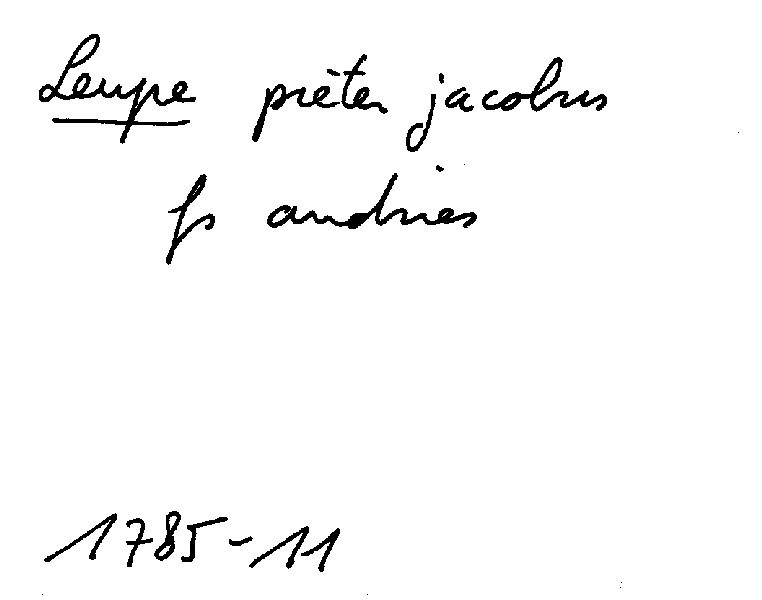 Leupe pieter jacobus
fs andries
1785-11